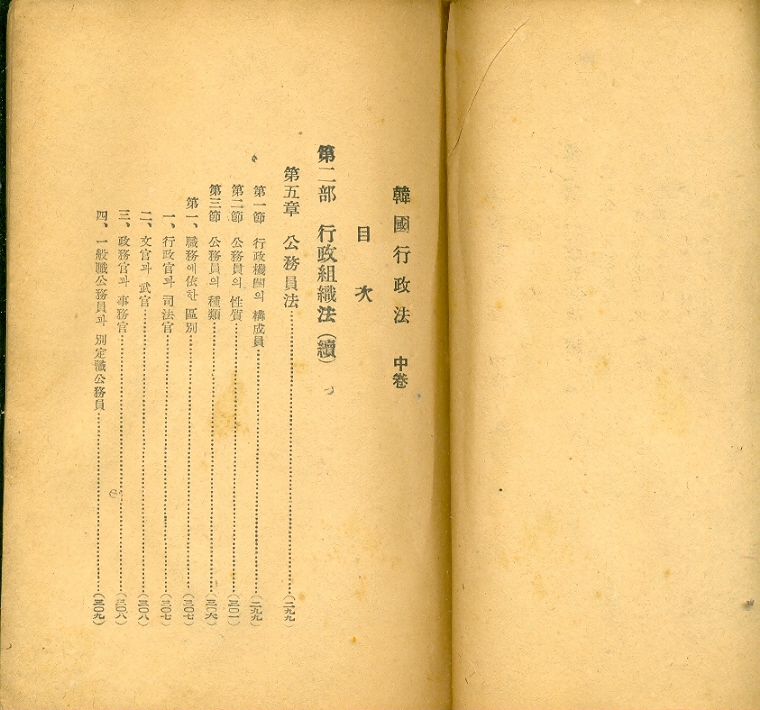 韓國行政法 中卷
目次
第二部 行政組織法(續)
第五章 公務員法……(二九九)
第一節 行政機關의 構成員……(二九九)
第二節 公務員의 性質……(三〇一)
第三節 公務員의 種類……(三〇六)
第一、職務에依한 區別……(三〇七)
一、行政官과 司法官……(三〇七)
二、文官과 武官……(三〇八)
三、政務官과 事務官……(三〇八)
四、一般職公務員과 別定職公務員……(三〇九)